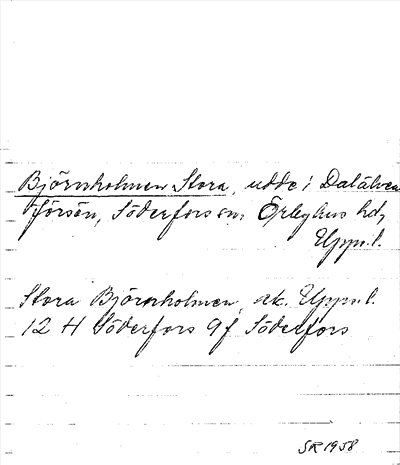 Björnholmen, Stora, udde i Dalälven
Söderfors sn, Örbyhus hd,
Upps. l.
Stora Björnholmen, ek. Upps. l.
12 H Söderfors 9f Söderfors
SR 1958